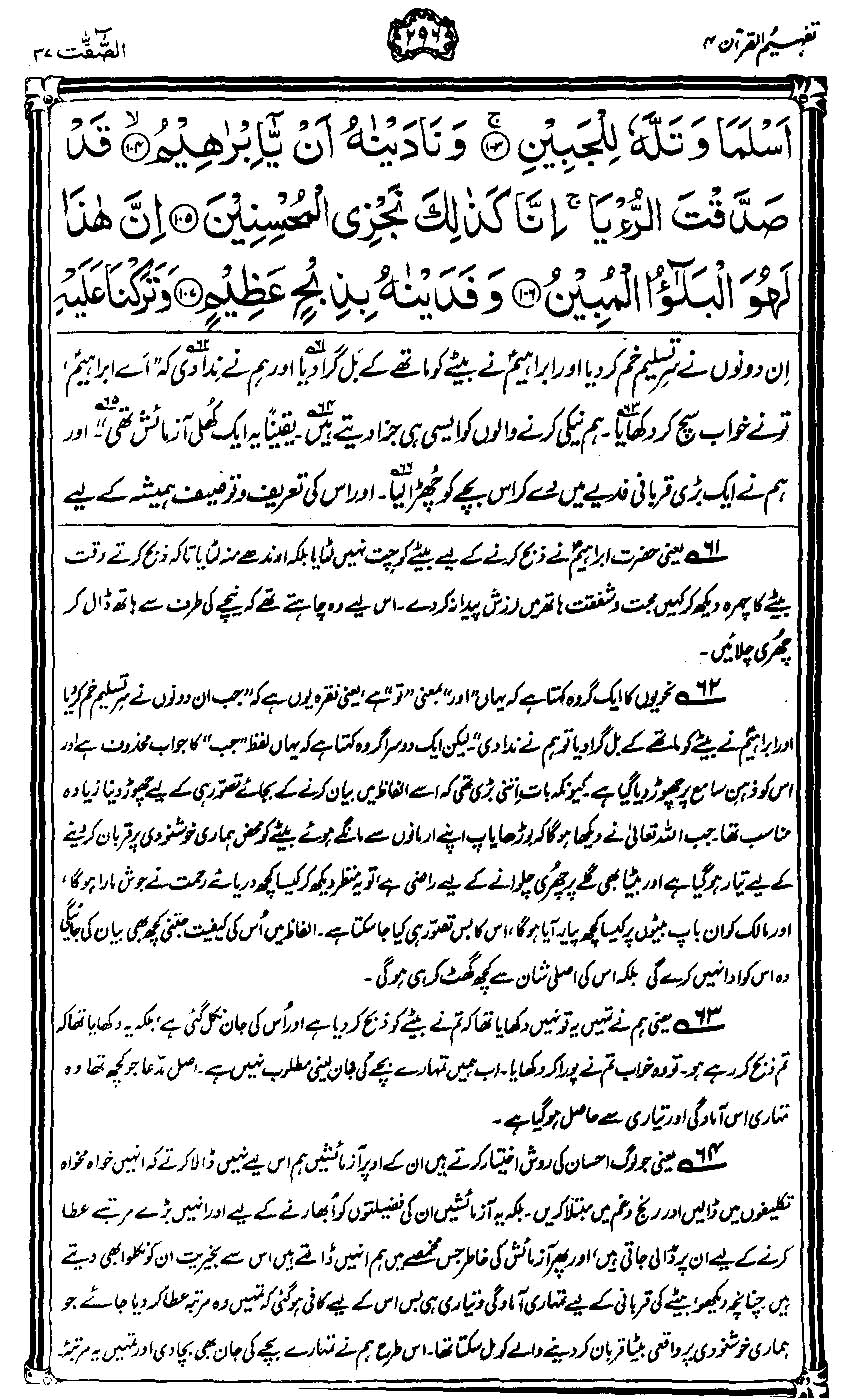 تفہیم القرآن ۴
۲۹۶
الصّٰفّٰت ۳۷
اَسْلَمَا وَتَلَّهٗ لِلْجَبِيْنِ ۚ﴿۱۰۳﴾ وَنَادَيْنٰهُ اَنْ يّٰٓاِبْرٰهِيْمُ ۙ﴿۱۰۴﴾ قَدْ
صَدَّقْتَ الرُّءْيَا ۚ اِنَّا كَذٰلِكَ نَجْزِى الْمُحْسِنِيْنَ ﴿۱۰۵﴾ اِنَّ هٰذَا
لَهُوَ الْبَلٰٓؤُا الْمُبِيْنُ ﴿۱۰۶﴾ وَفَدَيْنٰهُ بِذِبْحٍ عَظِيْمٍ ﴿۱۰۷﴾ وَتَرَكْنَا عَلَيْهِ
اِن دونوں نے سرِ تسلیم خم کر دیا اور ابراہیمؑ نے بیٹے کو ماتھے کے بَل گرا دیا۶۱ اور ہم نے ندا دی۶۲ کہ ”اَے ابراہیمؑ،
تو نے خواب سچ کر دکھایا۶۳۔ ہم نیکی کرنے والوں کو ایسی ہی جزا دیتے ہیں۶۴۔ یقیناً یہ ایک کھُلی آزمائش تھی۶۵“۔ اور
ہم نے ایک بڑی قربانی فدیے میں دے کر اس بچے کو چھُڑا لیا۶۶۔ اور اس کی تعریف و توصیف ہمیشہ کے لیے
۶۱ یعنی حضرت ابراہیمؑ نے ذبح کرنے کے لیے بیٹے کو چِت نہیں لٹایا بلکہ اوندھے منہ لٹایا تاکہ ذبح کرتے وقت
بیٹے کا چہرہ دیکھ کر کہیں محبت و شفقت ہاتھ میں لرزش پیدا نہ کر دے۔ اس لیے وہ چاہتے تھے کہ نیچے کی طرف سے ہاتھ ڈال کر
چھُری چلائیں۔
۶۲ نحویوں کا ایک گروہ کہتا ہے کہ یہاں ”اور“ بمعنی ”تو“ ہے، یعنی فقرہ یوں ہے کہ ”جب ان دونوں نے سرِ تسلیم خم کر دیا
اور ابراہیمؑ نے بیٹے کو ماتھے کے بل گرا دیا تو ہم نے ندا دی“۔ لیکن ایک دوسرا گروہ کہتا ہے کہ یہاں لفظ ”جب“ کا جواب محذوف ہے اور
اس کو ذہنِ سامع پر چھوڑ دیا گیا ہے۔ کیونکہ بات اِتنی بڑی تھی کہ اسے الفاظ میں بیان کرنے کے بجائے تصوّر ہی کے لیے چھوڑ دینا زیادہ
مناسب تھا۔ جب اللہ تعالیٰ نے دیکھا ہوگا کہ بوڑھا باپ اپنے ارمانوں سے مانگے ہوئے بیٹے کو محض ہماری خوشنودی پر قربان کر دینے
کے لیے تیار ہو گیا ہے اور بیٹا بھی گلے پر چھُری چلوانے کے لیے راضی ہے، تو یہ منظر دیکھ کر کیسا کچھ دریائے رحمت نے جوش مارا ہوگا،
اور مالک کو ان باپ بیٹوں پر کیسا کچھ پیار آیا ہوگا، اس کا بس تصوّر ہی کیا جا سکتا ہے۔ الفاظ میں اُس کی کیفیت جتنی کچھ بھی بیان کی جائیگی
وہ اس کو ادا نہیں کرے گی بلکہ اس کی اصلی شان سے کچھ گھٹ کر ہی ہوگی۔
۶۳ یعنی ہم نے تمہیں یہ تو نہیں دکھایا تھا کہ تم نے بیٹے کو ذبح کر دیا ہے اور اُس کی جان نکل گئی ہے، بلکہ یہ دکھایا تھا کہ
تم ذبح کر رہے ہو۔ تو وہ خواب تم نے پورا کر دکھایا۔ اب ہمیں تمہارے بچے کی جان لینی مطلوب نہیں ہے۔ اصل مدّعا جو کچھ تھا وہ
تمہاری اس آمادگی اور تیاری سے حاصل ہو گیا ہے۔
۶۴ یعنی جو لوگ احسان کی روش اختیار کرتے ہیں ان کے اوپر آزمائشیں ہم اس لیے نہیں ڈالا کرتے کہ انہیں خواہ مخواہ
تکلیفوں میں ڈالیں اور رنج و غم میں مبتلا کریں۔ بلکہ یہ آزمائشیں ان کی فضیلتوں کو اُبھارنے کے لیے اور انہیں بڑے مرتبے عطا
کرنے کے لیے ان پر ڈالی جاتی ہیں، اور پھر آزمائش کی خاطر جس مخمصے میں ہم انہیں ڈالتے ہیں اس سے بخیریت ان کو نکلوا بھی دیتے
ہیں چنانچہ دیکھو، بیٹے کی قربانی کے لیے تمہاری آمادگی و تیاری ہی بس اس کے لیے کافی ہو گئی کہ تمہیں وہ مرتبہ عطا کر دیا جائے جو
ہماری خوشنودی پر واقعی بیٹا قربان کر دینے والے کو مل سکتا تھا۔ اس طرح ہم نے تمہارے بچے کی جان بھی بچا دی اور تمہیں یہ مرتبۂ